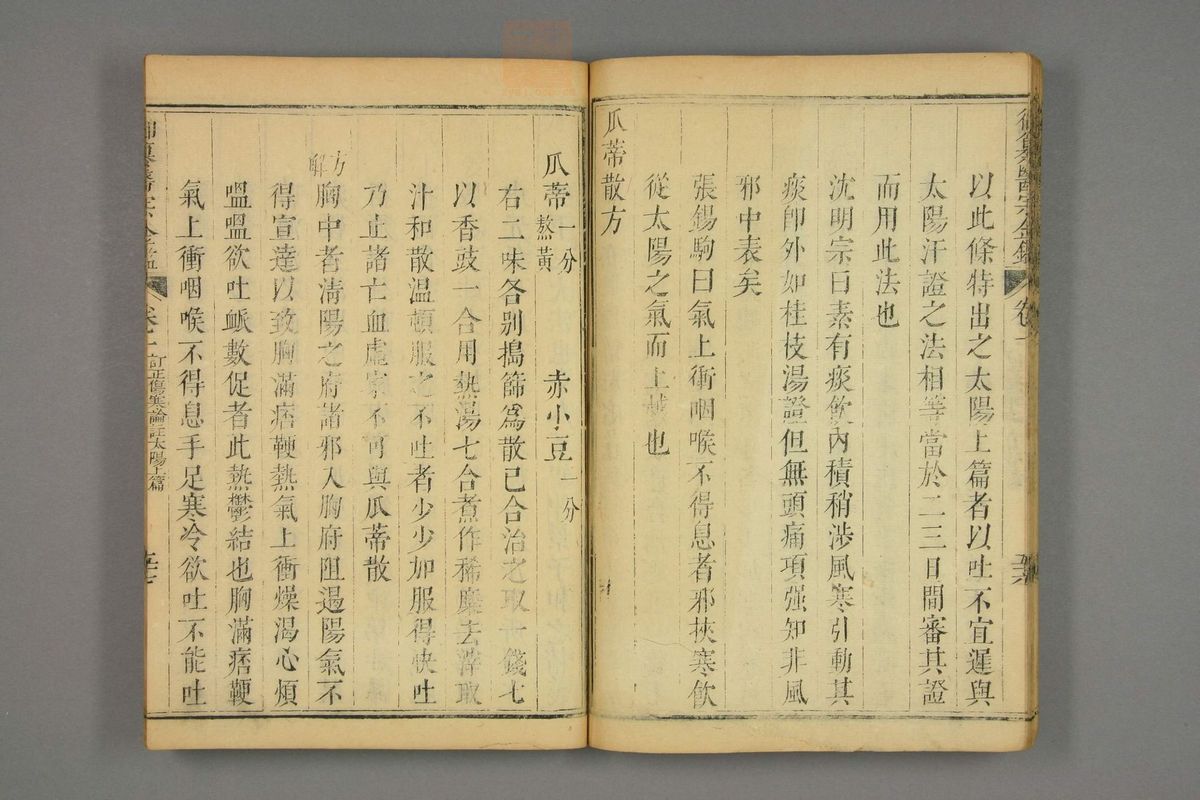 御纂醫宗金鑑 卷一
以此條特出之太陽上篇者以吐不宜遲與
太陽汗證之法相等當於二三日間審其證
而用此法也
沈明宗曰素有痰飮內積稍涉風寒引動其
痰卽外如桂枝湯證但無頭痛項强知非風
邪中表矣
張錫駒曰氣上衝咽喉不得息者邪挾寒飮
從太陽之氣而上越也
瓜蒂散方
瓜蒂一分熬黃 赤小豆一分
右二味各别搗篩爲散已合治之取一錢七
以香豉一合用熱湯七合煮作稀糜去滓取
汁和散温頓服之不吐者少少加服得快吐
乃止諸亡血虛家不可與瓜蒂散
方解
胸中者淸陽之府諸邪入胸府阻遏陽氣不
得宣達以致胸滿痞鞕熱氣上衝燥渴心煩
嗢嗢欲吐脈數促者此熱鬱結也胸滿痞鞕
氣上衝咽喉不得息手足寒冷欲吐不能吐
御纂醫宗金鑑 卷一 訂正傷寒論註太陽上篇